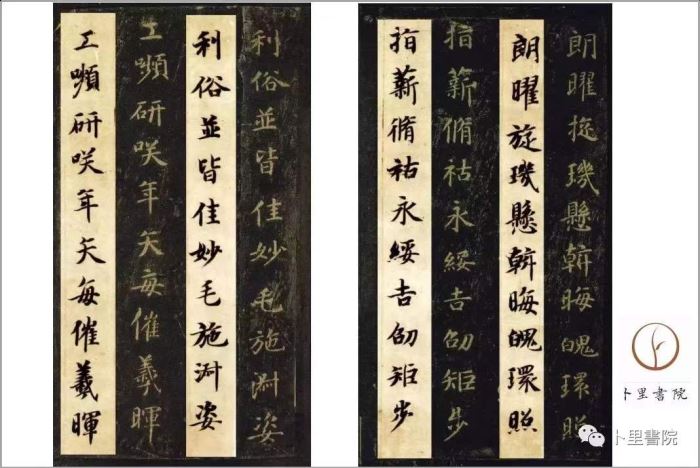 利俗並皆佳妙毛施淑姿
利俗並皆佳妙毛施淑姿
工嚬研咲年矢每催羲暉
工嚬研咲年矢每催羲暉
朗曜旋璣懸斡晦魄環照
朗曜旋璣懸斡晦魄環照
指薪脩祜永綏吉劭矩步
指薪脩祜永綏吉劭矩步
卜里書院
卜里書院